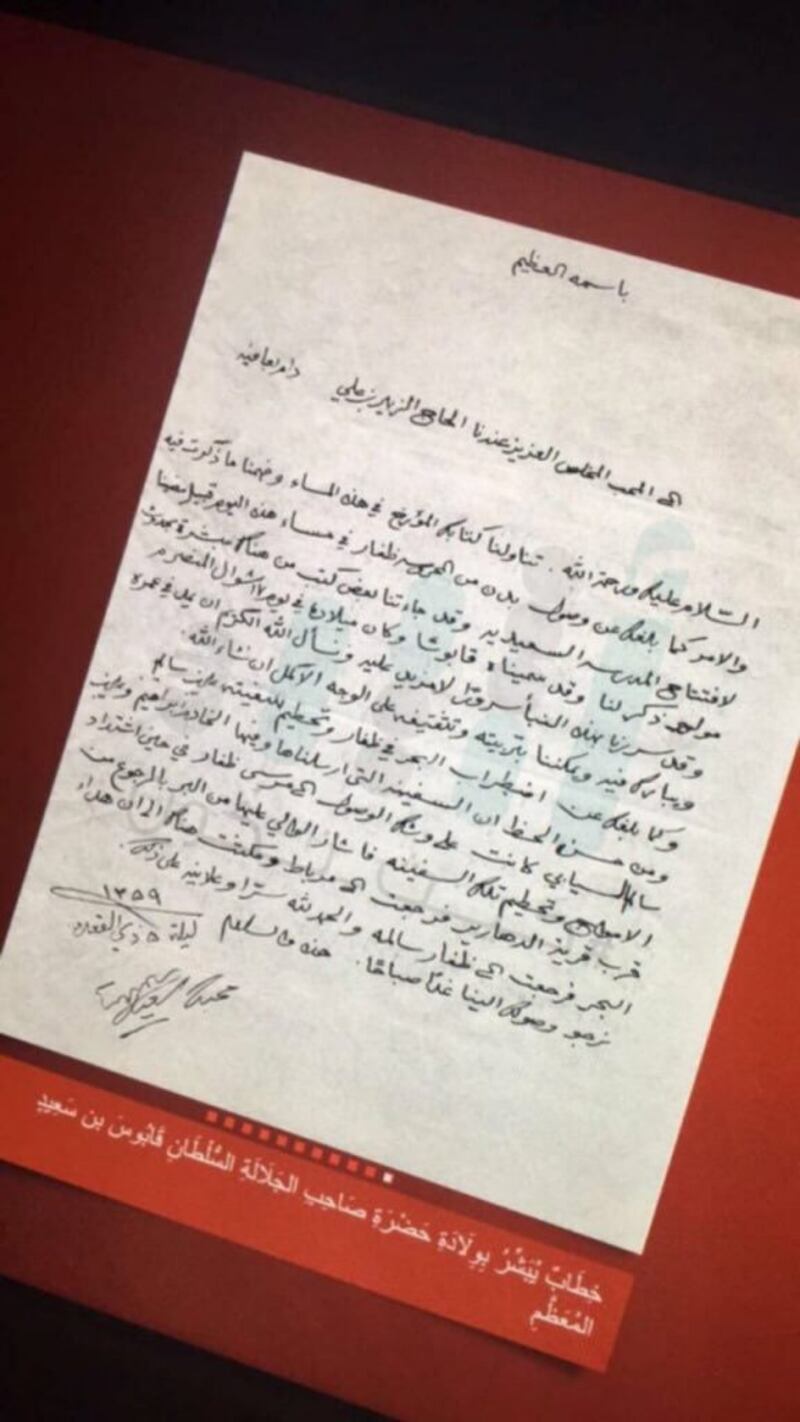 باسمه العظيم
الى المحب المخلص العزيز عندنا الحاج الزبير بن علي دام بعافيه
السلام عليك ورحمة الله . تناولنا كتابك المؤرخ في هذا المساء وفهمنا ما ذكرت فيه
والامر كما بلغك عن وصول بدن من المحروسه ظفار في مساء هذا اليوم قبيل مضينا
لافتتاح المدرسه السعيديه وقد جاءتنا بعض كتب من هناك مبشرة بحدوث
مولود ذكر لنا وقد سميناه قابوسًا وكان ميلاده في يوم ١٧ شوال المنصرم
وقد سررنا بهذا النبأ سرورًا لا مزيد عليه ونسأل الله الكريم ان يمد في عمره
ويبارك فيه ويمكننا بتربيته وتثقيفه على الوجه الاكمل ان نشاء الله .
وكما بلغك عن اضطراب البحر في ظفار وتحطيم السفينة سالم
ومن حسن الحظ ان السفينه التى ارسلناها وفيها الخادم ابراهيم
سالم السيابي كانت على وشك الوصول الى مرسى ظفار في حين اشتداد
الامواج وتحطيم تلك السفينه فاشار الوالي عليها من البر بالرجوع من
قرب قرية الدهاريز فرجعت الى مرباط ومكثت هناك الى ان هدأ
البحر فرجعت الى ظفار سالمه والحمد لله سرًا وعلانيه على ذلك .
نرجو وصولك الينا غدًا صباحًا . هذا والسلام ليلة ٥ ذي القعده ١٣٥٩
خِطَابٌ يُبَشِّرُ بِوِلَادَةِ حَضْرَةِ صَاحِبِ الجَلَالَةِ السُّلْطَانِ قَابُوسَ بن سَعِيدٍ
المُعَظَّمِ